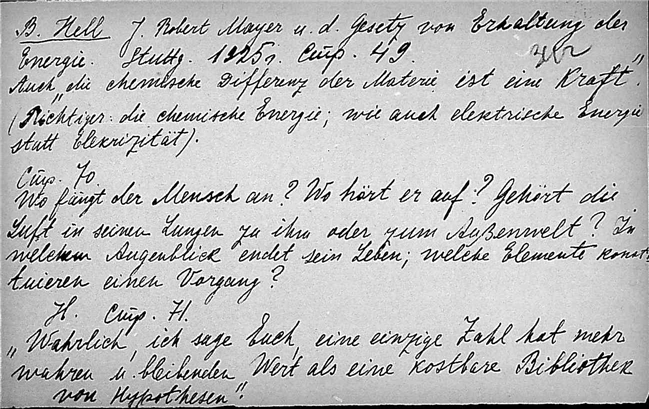 B. Hell J. Robert Mayer u. d. Gesetz von Erhaltung der
Energie. Stuttg. 1925 г. Стр. 49.
Auch „die chemische Differenz der Materie ist eine Kraft".
(Richtiger: die chemische Energie; wie auch elektrische Energie
statt Elekrizität).
Стр. 70.
Wo fängt der Mensch an? Wo hört er auf? Gehört die
Luft in seinen Lungen zu ihm oder zum Außenwelt? In
welchem Augenblick endet sein Leben; welche Elemente konsti-
tuieren einen Vorgang?
H. Стр. 71.
„Wahrlich, ich sage Euch, eine einzige Zahl hat mehr
wahren u. bleibenden Wert als eine kostbare Bibliothek
von Hypothesen".